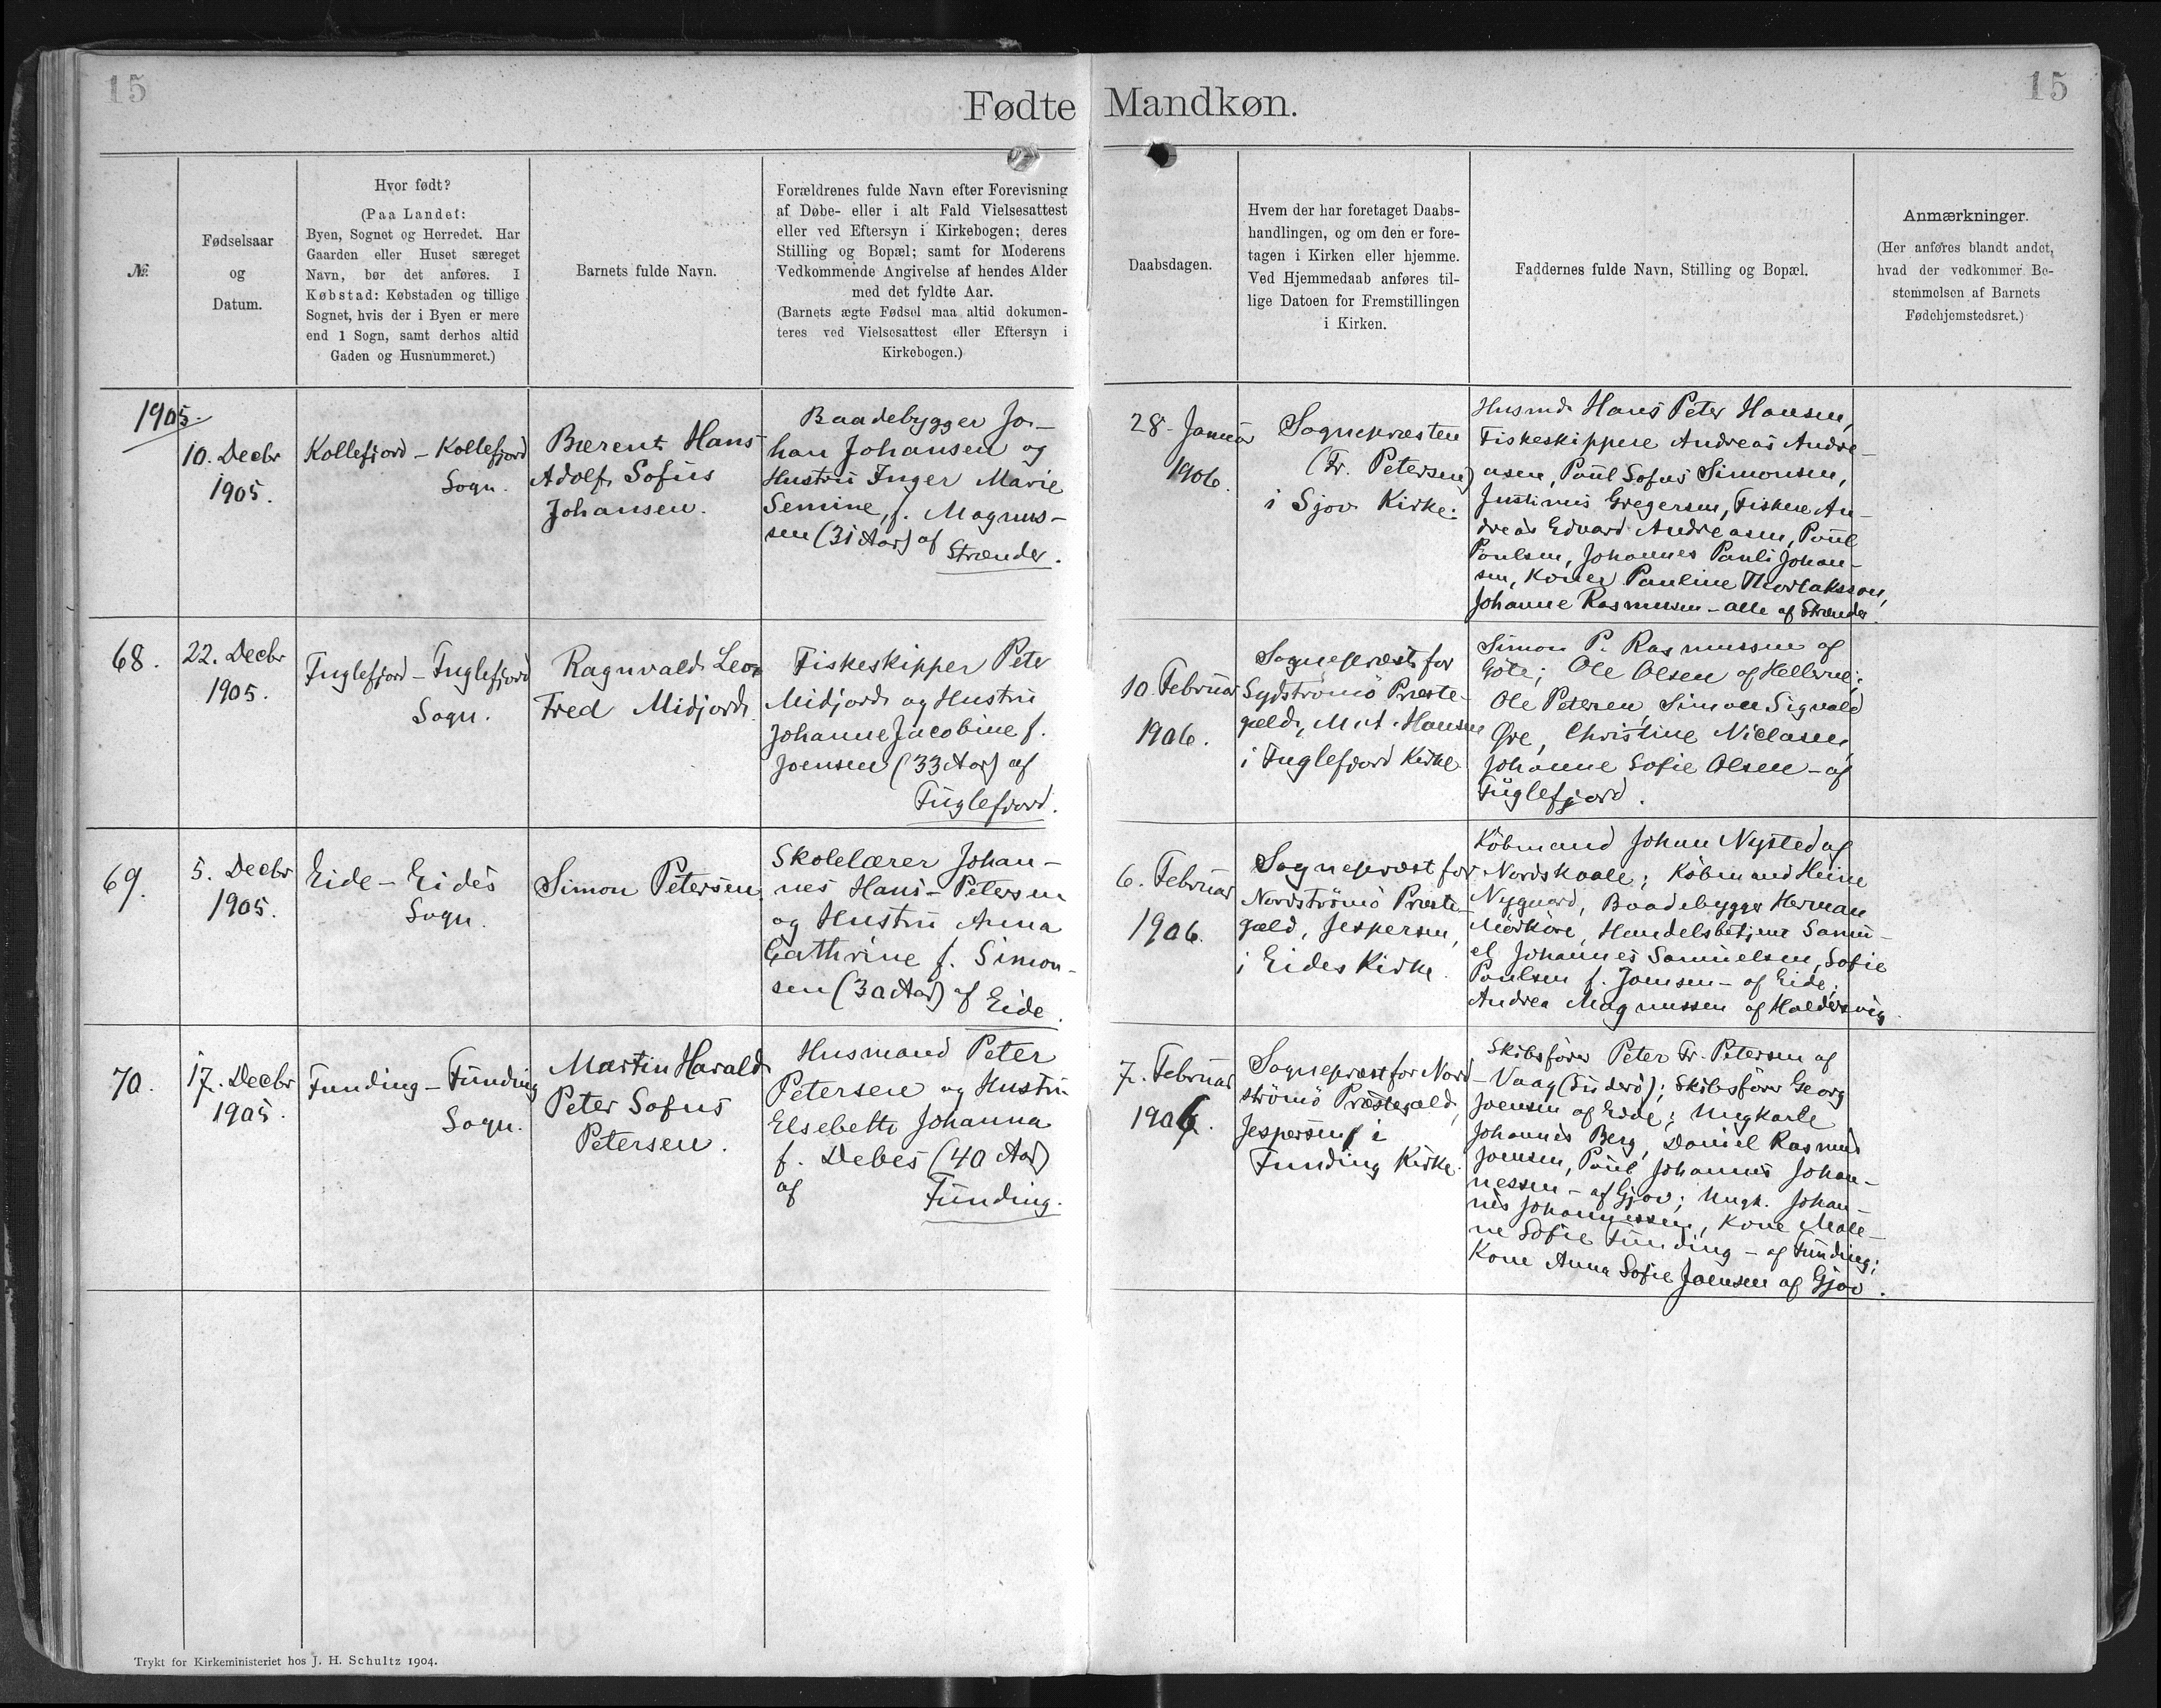 15
15
Fødte Mandkøn.
№.
Fødselsaar
og
Datum.
Hvor født?
(Paa Landet:
Byen, Sognet og Herredet. Har
Gaarden eller Huset særeget
Navn, bør det anføres. I
Købstad: Købstaden og tillige
Sognet, hvis der i Byen er mere
end 1 Sogn, samt derhos altid
Gaden og Husnummeret.)
Barnets fulde Navn.
Forældrenes fulde Navn efter Forevisning
af Døbe- eller i alt Fald Vielsesattest
eller ved Eftersyn i Kirkebogen; deres
Stilling og Bopæl; samt for Moderens
Vedkommende Angivelse af hendes Alder
med det fyldte Aar.
(Barnets ægte Fødsel maa altid dokumen-
teres ved Vielsesattest eller Eftersyn i
Kirkebogen.)
Daabsdagen.
Hvem der har foretaget Daabs-
handlingen, og om den er fore-
tagen i Kirken eller hjemme.
Ved Hjemmedaab anføres til-
lige Datoen for Fremstillingen
i Kirken.
Faddernes fulde Navn, Stilling og Bopæl.
Anmærkninger.
(Her anføres blandt andet,
hvad der vedkommer Be-
stemmelsen af Barnets
Fødehjemstedsret.)
1905.
10. Decbr
1905.
Kollefjord - Kollefjord
Sogn.
Bærent Hans
Adolf Sofus
Johansen.
Baadebygger Jo-
han Johansen og
Hustru Inger Marie
Semine, f. Magnus-
sen (31 Aar) af
Strænder.
28. Januar
1906.
Sognepræsten
(Fr. Petersen)
i Sjov Kirke.
Husmd. Hans Peter Hansen,
Fiskeskippere Andreas Andre-
asen, Poul Sofus Simonsen,
Justinus Gregersen, Fiskere An-
dreas Edvard Andreasen, Poul
Poulsen, Johannes Pauli Johan-
sen, Koner Pauline Thorlaksson,
Johanne Rasmussen - alle af Strænder
68.
22. Decbr
1905.
Fuglefjord - Fuglefjord
Sogn.
Ragnvald Leon
Fred Midjord.
Fiskeskipper Peter
Midjord og Hustru
Johanne Jacobine f.
Joensen (33 Aar) af
Fuglefjord.
10. Februar
1906.
Sognepræst for
Sydströmö Præste-
gæld, M. A. Hansen
i Fuglefjord Kirke
Simon P. Rasmussen af
Göte; Ole Olsen af Hellerne;
Ole Petersen, Simon Sigvald
Øre, Christine Niclasen,
Johanne Sofie Olsen - af
Fuglefjord.
69.
5. Decbr
1905.
Eide - Eides
Sogn.
Simon Petersen.
Skolelærer Johan-
nes Hans-Petersen
og Hustru Anna
Cathrine f. Simon-
sen (30 Aar) af Eide.
6. Februar
1906.
Sognepræst for
Nordströmö Præste-
gæld, Jespersen,
i Eides Kirke.
Köbmand Johan Nysted af
Nordskaale; Köbmand Heine
Nygaard, Baadebygger Herman
Mörköre, Handelsbetjent Samu-
el Johannes Samuelsen, Sofie
Poulsen f. Joensen - af Eide;
Andrea Magnussen af Haldersvig.
70.
17. Decbr
1905.
Funding - Funding
Sogn.
Martin Harald
Peter Sofus
Petersen.
Husmand Peter
Petersen og Hustru
Elsebeth Johanna
f. Debes (40 Aar)
af
Funding.
7. Februar
1906.
Sognepræst for Nord-
strömö Præstegæld,
Jespersen, i
Funding Kirke.
Skibsförer Peter Fr. Petersen af
Vaag (Suderö); Skibsförer Georg
Joensen af Eide; Ungkarle
Johannes Berg, Daniel Rasmus
Joensen, Poul Johannes Johan-
nessen - af Gjov; Ungk. Johan-
nes Johannessen, Kone Male-
ne Sofie Funding - af Funding;
Kone Anna Sofie Joensen af Gjov.
Trykt for Kirkeministeriet hos J. H. Schultz 1904.